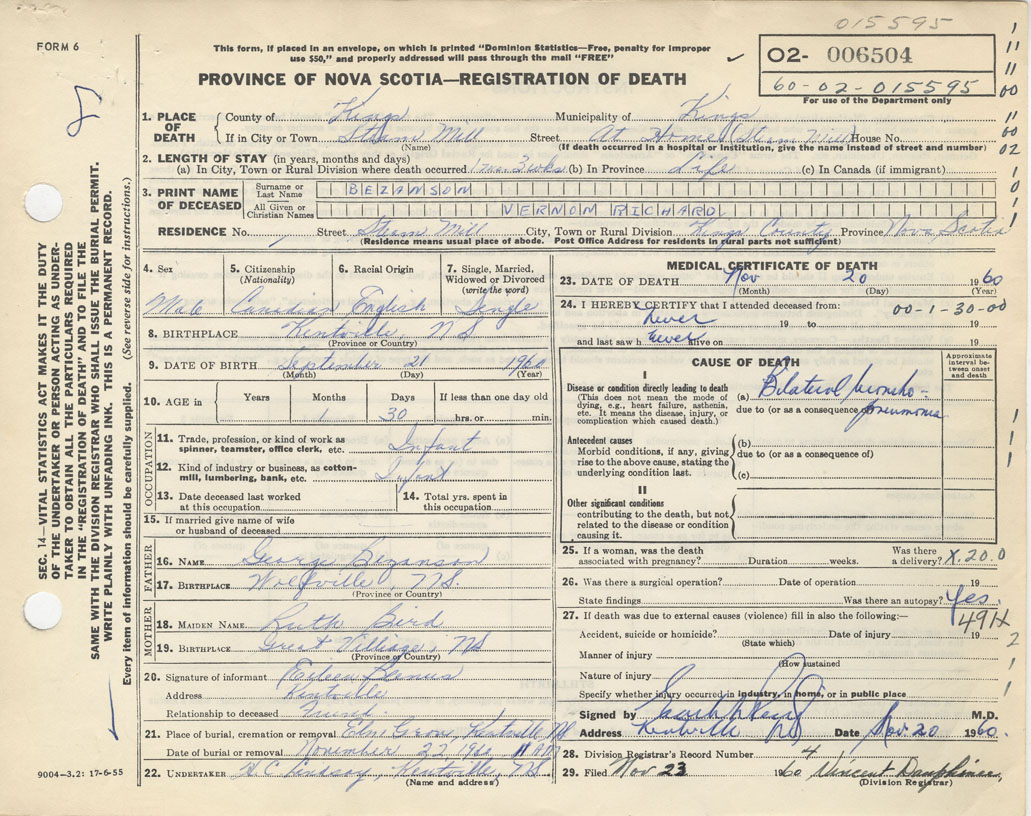 015595
FORM 6
This form, if placed in an envelope, on which is printed "Dominion Statistics—Free, penalty for improper
use $50," and properly addressed will pass through the mail "FREE"
PROVINCE OF NOVA SCOTIA—REGISTRATION OF DEATH
02- 006504
60-02-015595
For use of the Department only
1. PLACE OF DEATH
County of Kings Municipality of Kings
If in City or Town Steam Mill Street At Home (Steam Mill) House No.
(Name) (If death occurred in a hospital or institution, give the name instead of street and number)
2. LENGTH OF STAY (in years, months and days)
(a) In City, Town or Rural Division where death occurred 1 mo. 3 wks (b) In Province Life (c) In Canada (if immigrant)
3. PRINT NAME OF DECEASED
Surname or Last Name BEZANSON
All Given or Christian Names VERNON RICHARD
RESIDENCE No. Street Steam Mill City, Town or Rural Division Kings County Province Nova Scotia
(Residence means usual place of abode. Post Office Address for residents in rural parts not sufficient)
4. Sex Male
5. Citizenship (Nationality) Canadian
6. Racial Origin English
7. Single, Married, Widowed or Divorced (write the word) Single
8. BIRTHPLACE Kentville, NS
(Province or Country)
9. DATE OF BIRTH September 21 1960
(Month) (Day) (Year)
10. AGE in Years Months Days If less than one day old
1 30 hrs. or min.
OCCUPATION
11. Trade, profession, or kind of work as spinner, teamster, office clerk, etc. Infant
12. Kind of industry or business, as cotton-mill, lumbering, bank, etc. Infant
13. Date deceased last worked at this occupation
14. Total yrs. spent in this occupation
15. If married give name of wife or husband of deceased
FATHER
16. NAME George Bezanson
17. BIRTHPLACE Wolfville, NS
(Province or Country)
MOTHER
18. MAIDEN NAME Ruth Bird
19. BIRTHPLACE Great Village, NS
(Province or Country)
20. Signature of informant Eileen
Address Kentville
Relationship to deceased Friend
21. Place of burial, cremation or removal Elm Grove, Kentville NS
Date of burial or removal November 22 1960
22. UNDERTAKER W C Lindsay Kentville, NS
(Name and address)
MEDICAL CERTIFICATE OF DEATH
23. DATE OF DEATH Nov 20 1960
(Month) (Day) (Year)
24. I HEREBY CERTIFY that I attended deceased from: 00-1-30-00
never 19 to 19
and last saw h never alive on 19
CAUSE OF DEATH
Approximate interval between onset and death
I
Disease or condition directly leading to death
(This does not mean the mode of dying, e.g., heart failure, asthenia, etc. It means the disease, injury, or complication which caused death.)
(a) Bilateral broncho-pneumonia
due to (or as a consequence of)
Antecedent causes
Morbid conditions, if any, giving rise to the above cause, stating the underlying condition last.
(b)
due to (or as a consequence of)
(c)
II
Other significant conditions
contributing to the death, but not related to the disease or condition causing it.
25. If a woman, was the death associated with pregnancy? Duration weeks. Was there a delivery? X.20.0
26. Was there a surgical operation? Date of operation 19
State findings Was there an autopsy? Yes
27. If death was due to external causes (violence) fill in also the following:— 491X
Accident, suicide or homicide? Date of injury 19
(State which)
Manner of injury
(How sustained
Nature of injury
Specify whether injury occurred in industry, in home, or in public place
Signed by M.D.
Address Kentville NS Date Nov. 20 1960.
28. Division Registrar's Record Number 4
29. Filed Nov 23 1960 Vincent Dauphinee
(Division Registrar)
SEC. 14—VITAL STATISTICS ACT MAKES IT THE DUTY
OF THE UNDERTAKER OR PERSON ACTING AS UNDER-
TAKER TO OBTAIN ALL THE PARTICULARS REQUIRED
IN THE "REGISTRATION OF DEATH" AND TO FILE THE
SAME WITH THE DIVISION REGISTRAR WHO SHALL ISSUE THE BURIAL PERMIT.
WRITE PLAINLY WITH UNFADING INK. THIS IS A PERMANENT RECORD.
Every item of information should be carefully supplied. (See reverse side for instructions.)
9004—3.2: 17-6-55